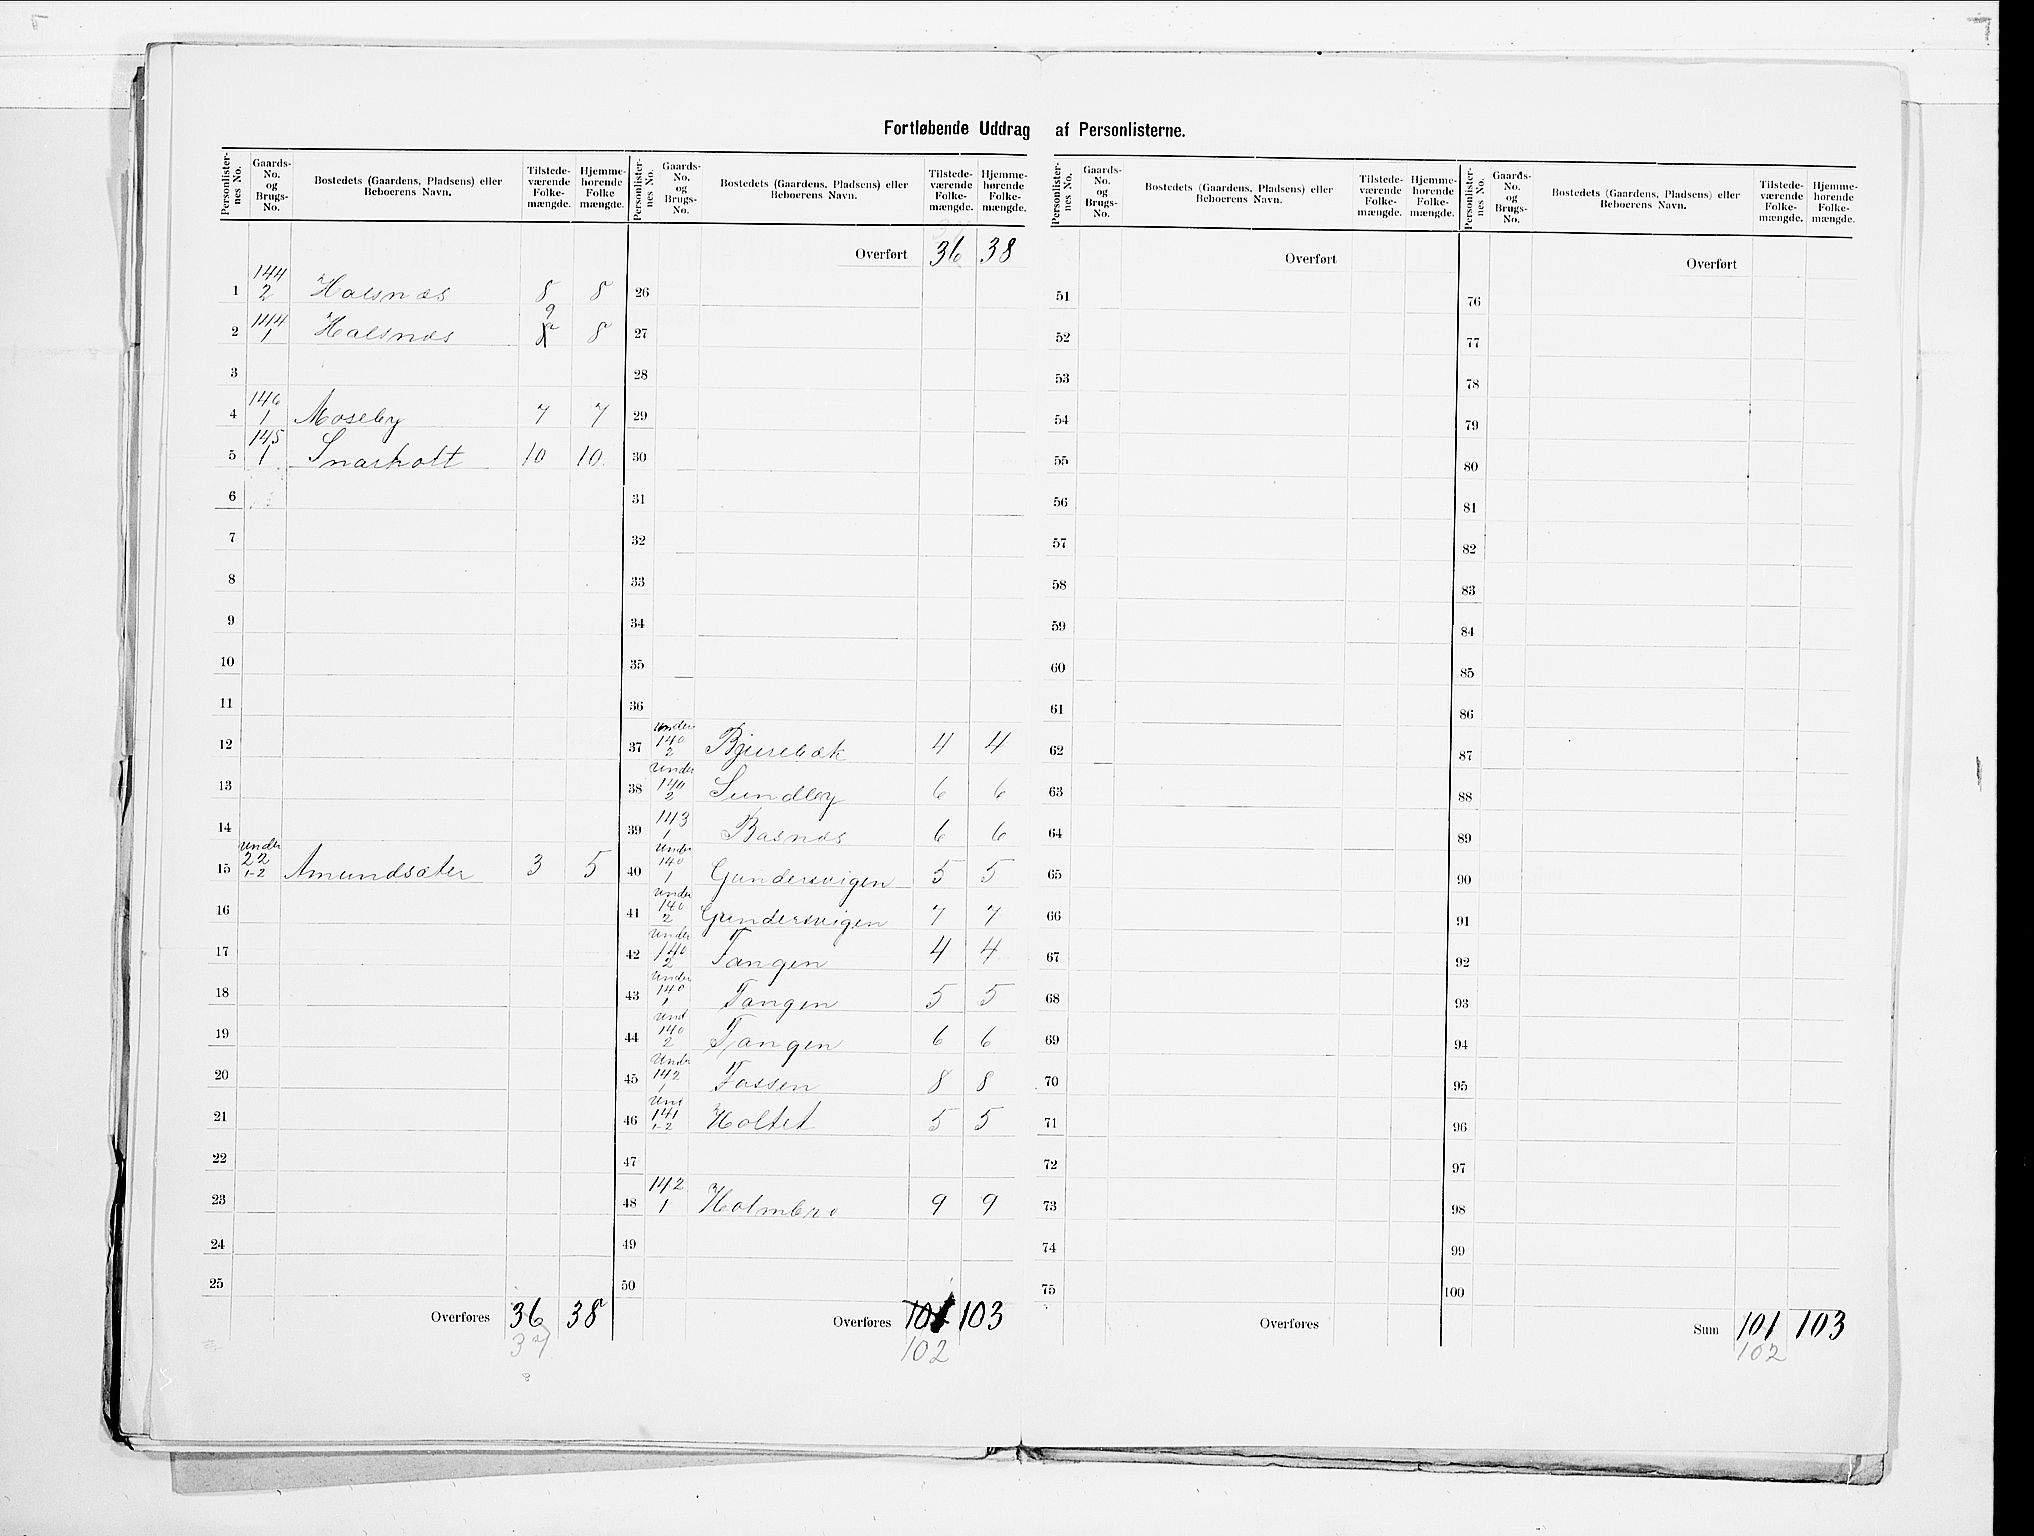 Fortløbende Uddrag af Personlisterne.
Personlisternes No. | Gaards-No. og Brugs-No. | Bostedets (Gaardens, Pladsens) eller Beboerens Navn. | Tilstedeværende Folkemængde. | Hjemmehorende Folke mængde.
1 | 144 2 | Halsnæs | 8 | 8
2 | 144 1 | Halsnæs | 9 | 8
3
4 | 146 1 | Moseby | 7 | 7
5 | 145 1 | Snarholt | 10 | 10
6
7
8
9
10
11
12
13
14
15 | under 22 1-2 | Amundsæter | 3 | 5
16
17
18
19
20
21
22
23
24
25
Overføres 36 38
37
Personlisternes No. | Gaards-No. og Brugs-No. | Bostedets (Gaardens, Pladsens) eller Beboerens Navn. | Tilstedeværende Folkemængde. | Hjemmehorende Folkemængde.
Overført 36 38
26
27
28
29
30
31
32
33
34
35
36
37 | under 140 2 | Bjurebæk | 4 | 4
38 | under 140 2 | Sundby | 6 | 6
39 | 143 1 | Basnæs | 6 | 6
40 | under 140 1 | Gundersvigen | 5 | 5
41 | under 140 2 | Gundersvigen | 7 | 7
42 | under 140 2 | Tangen | 4 | 4
43 | under 140 1 | Tangen | 5 | 5
44 | und 140 2 | Tangen | 6 | 6
45 | under 142 1 | Fossen | 8 | 8
46 | und 141 1-2 | Holtet | 5 | 5
47
48 | 142 1 | Holmbro | 9 | 9
49
50
Overføres 101 103
102
Personlisternes No. | Gaards-No. og Brugs-No. | Bostedets (Gaardens, Pladsens) eller Beboerens Navn. | Tilstedeværende Folkemængde. | Hjemmehorende Folkemængde.
Overført
51
52
53
54
55
56
57
58
59
60
61
62
63
64
65
66
67
68
69
70
71
72
73
74
75
Overføres
Personlisternes No. | Gaards-No. og Brugs-No. | Bostedets (Gaardens, Pladsens) eller Beboerens Navn. | Tilstedeværende Folkemængde. | Hjemmehorende Folkemængde.
Overført
76
77
78
79
80
81
82
83
84
85
86
87
88
89
90
91
92
93
94
95
96
97
98
99
100
Sum 101 103
102